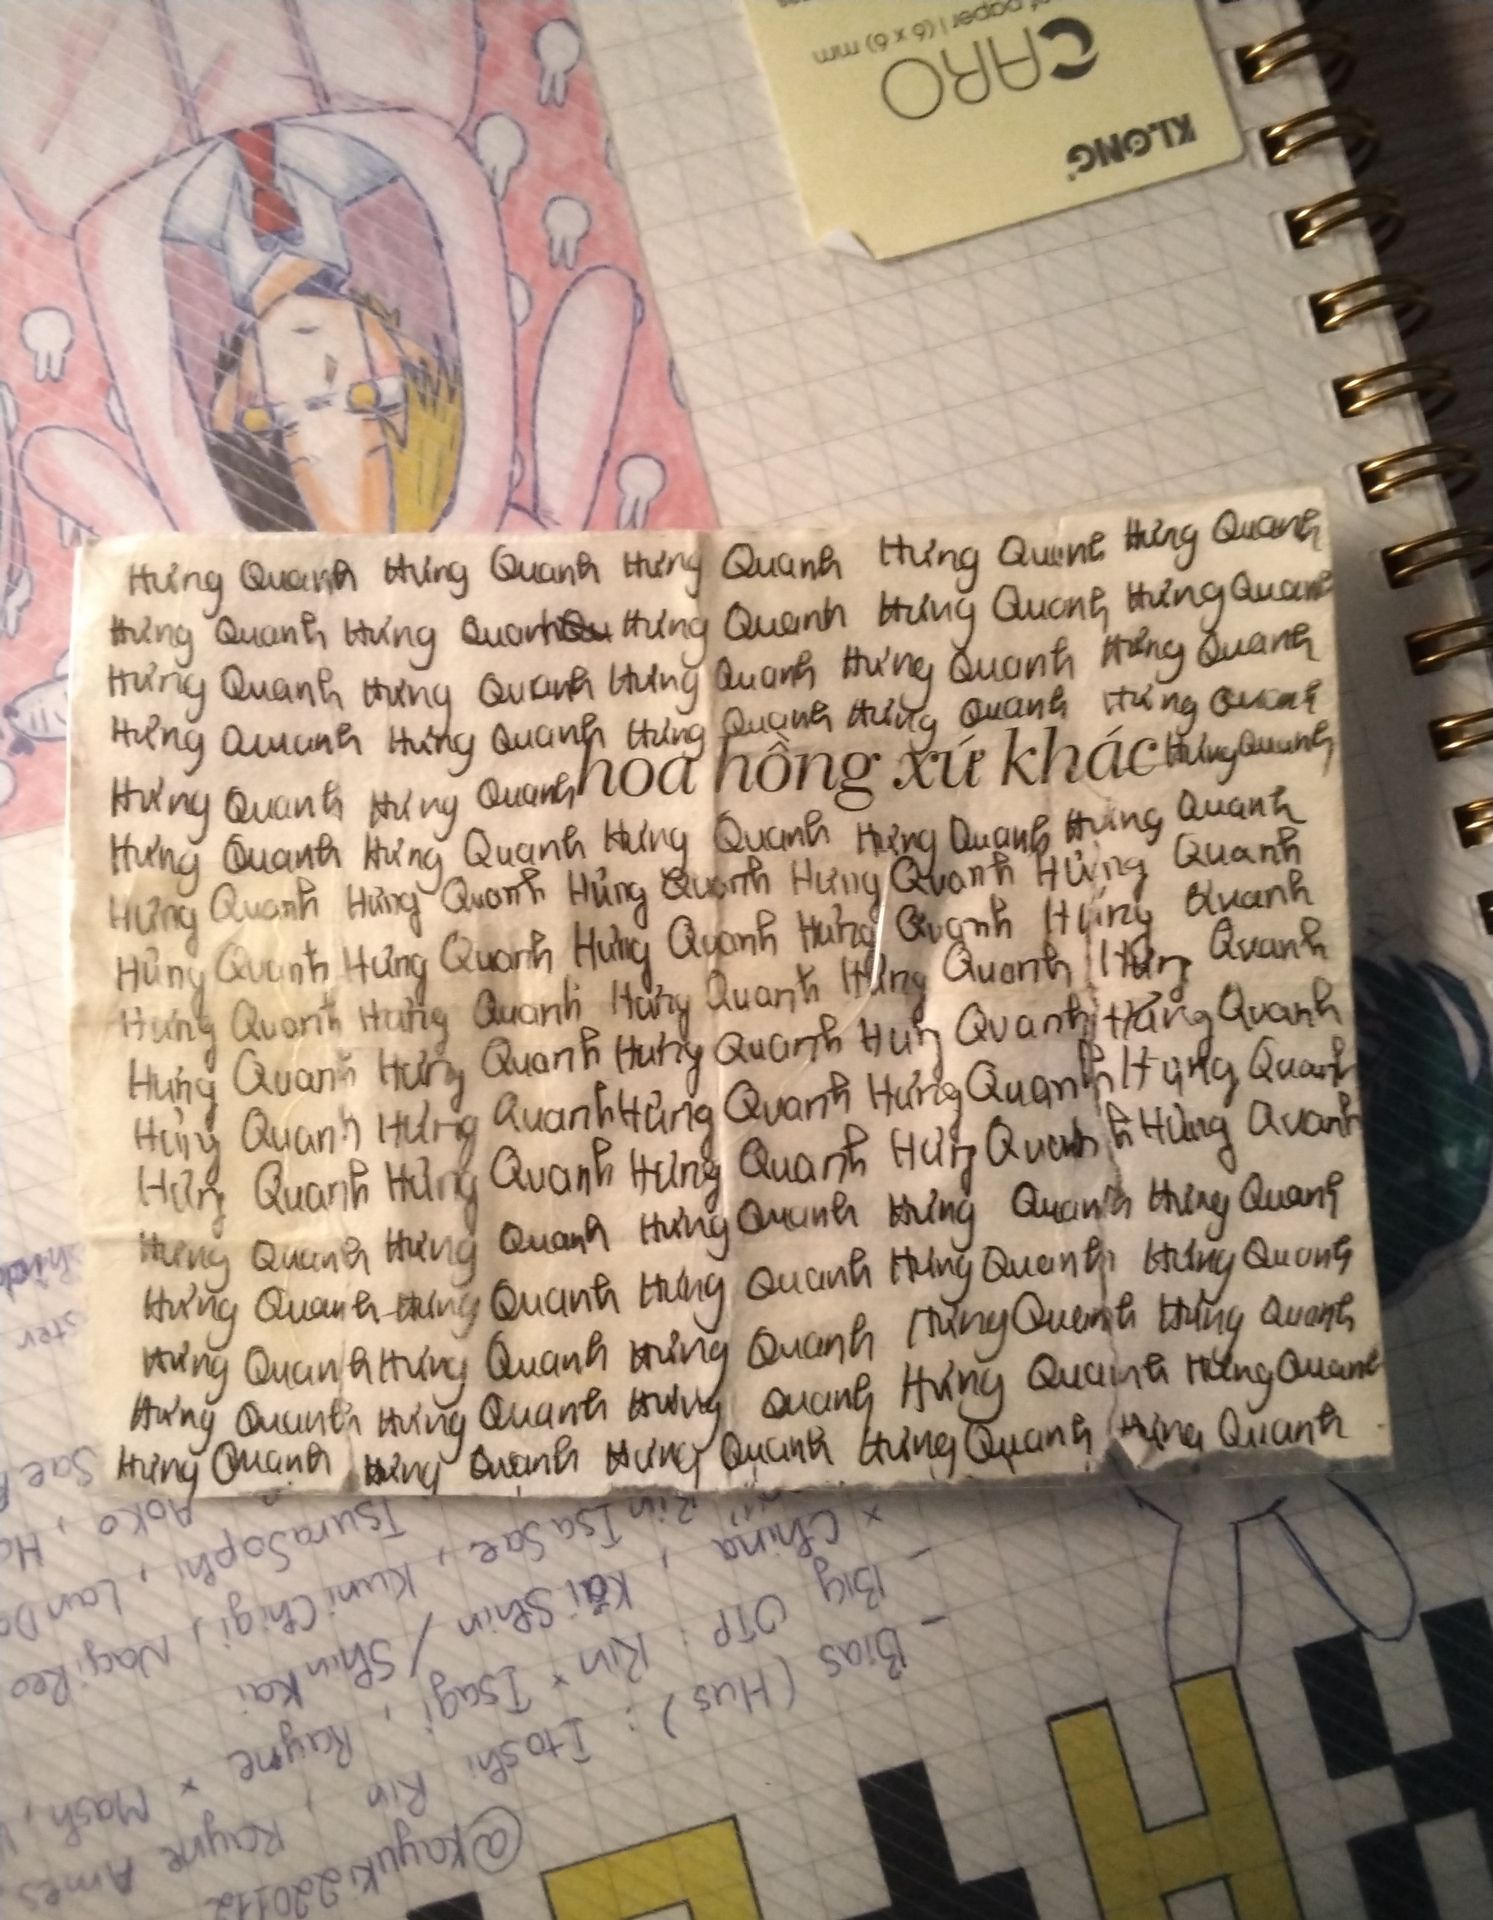 of paper | (6 x 6) mm
CARO
KLONG
Hứng Quanh Hứng Quanh Hứng Quanh Hứng Quanh Hứng Quanh
Hứng Quanh Hứng Quanh Hứng Quanh Hứng Quanh Hứng Quanh
Hứng Quanh Hứng Quanh Hứng Quanh Hứng Quanh Hứng Quanh
Hứng Quanh Hứng Quanh Hứng Quanh Hứng Quanh Hứng Quanh
Hứng Quanh Hứng Quanh hoa hồng xứ khác Hứng Quanh
Hứng Quanh Hứng Quanh Hứng Quanh Hứng Quanh Hứng Quanh
Hứng Quanh Hứng Quanh Hứng Quanh Hứng Quanh Hứng Quanh
Hứng Quanh Hứng Quanh Hứng Quanh Hứng Quanh Hứng Quanh
Hứng Quanh Hứng Quanh Hứng Quanh Hứng Quanh Hứng Quanh
Hứng Quanh Hứng Quanh Hứng Quanh Hứng Quanh Hứng Quanh
Hứng Quanh Hứng Quanh Hứng Quanh Hứng Quanh Hứng Quanh
Hứng Quanh Hứng Quanh Hứng Quanh Hứng Quanh Hứng Quanh
Hứng Quanh Hứng Quanh Hứng Quanh Hứng Quanh Hứng Quanh
Hứng Quanh Hứng Quanh Hứng Quanh Hứng Quanh Hứng Quanh
Hứng Quanh Hứng Quanh Hứng Quanh Hứng Quanh Hứng Quanh
Hứng Quanh Hứng Quanh Hứng Quanh Hứng Quanh Hứng Quanh
Hứng Quanh Hứng Quanh Hứng Quanh Hứng Quanh Hứng Quanh
@kayuki220112
- Bias (Hus) : Itoshi Rin, Rayne Ames
- Big OTP : Rin × Isagi, Rayne × Mash,
× China, KaiShin / ShinKai
RinIsaSae, KuniChigi, NagiReo
TsuraSophi, LanDo
Aoko, Ha
Sae
H